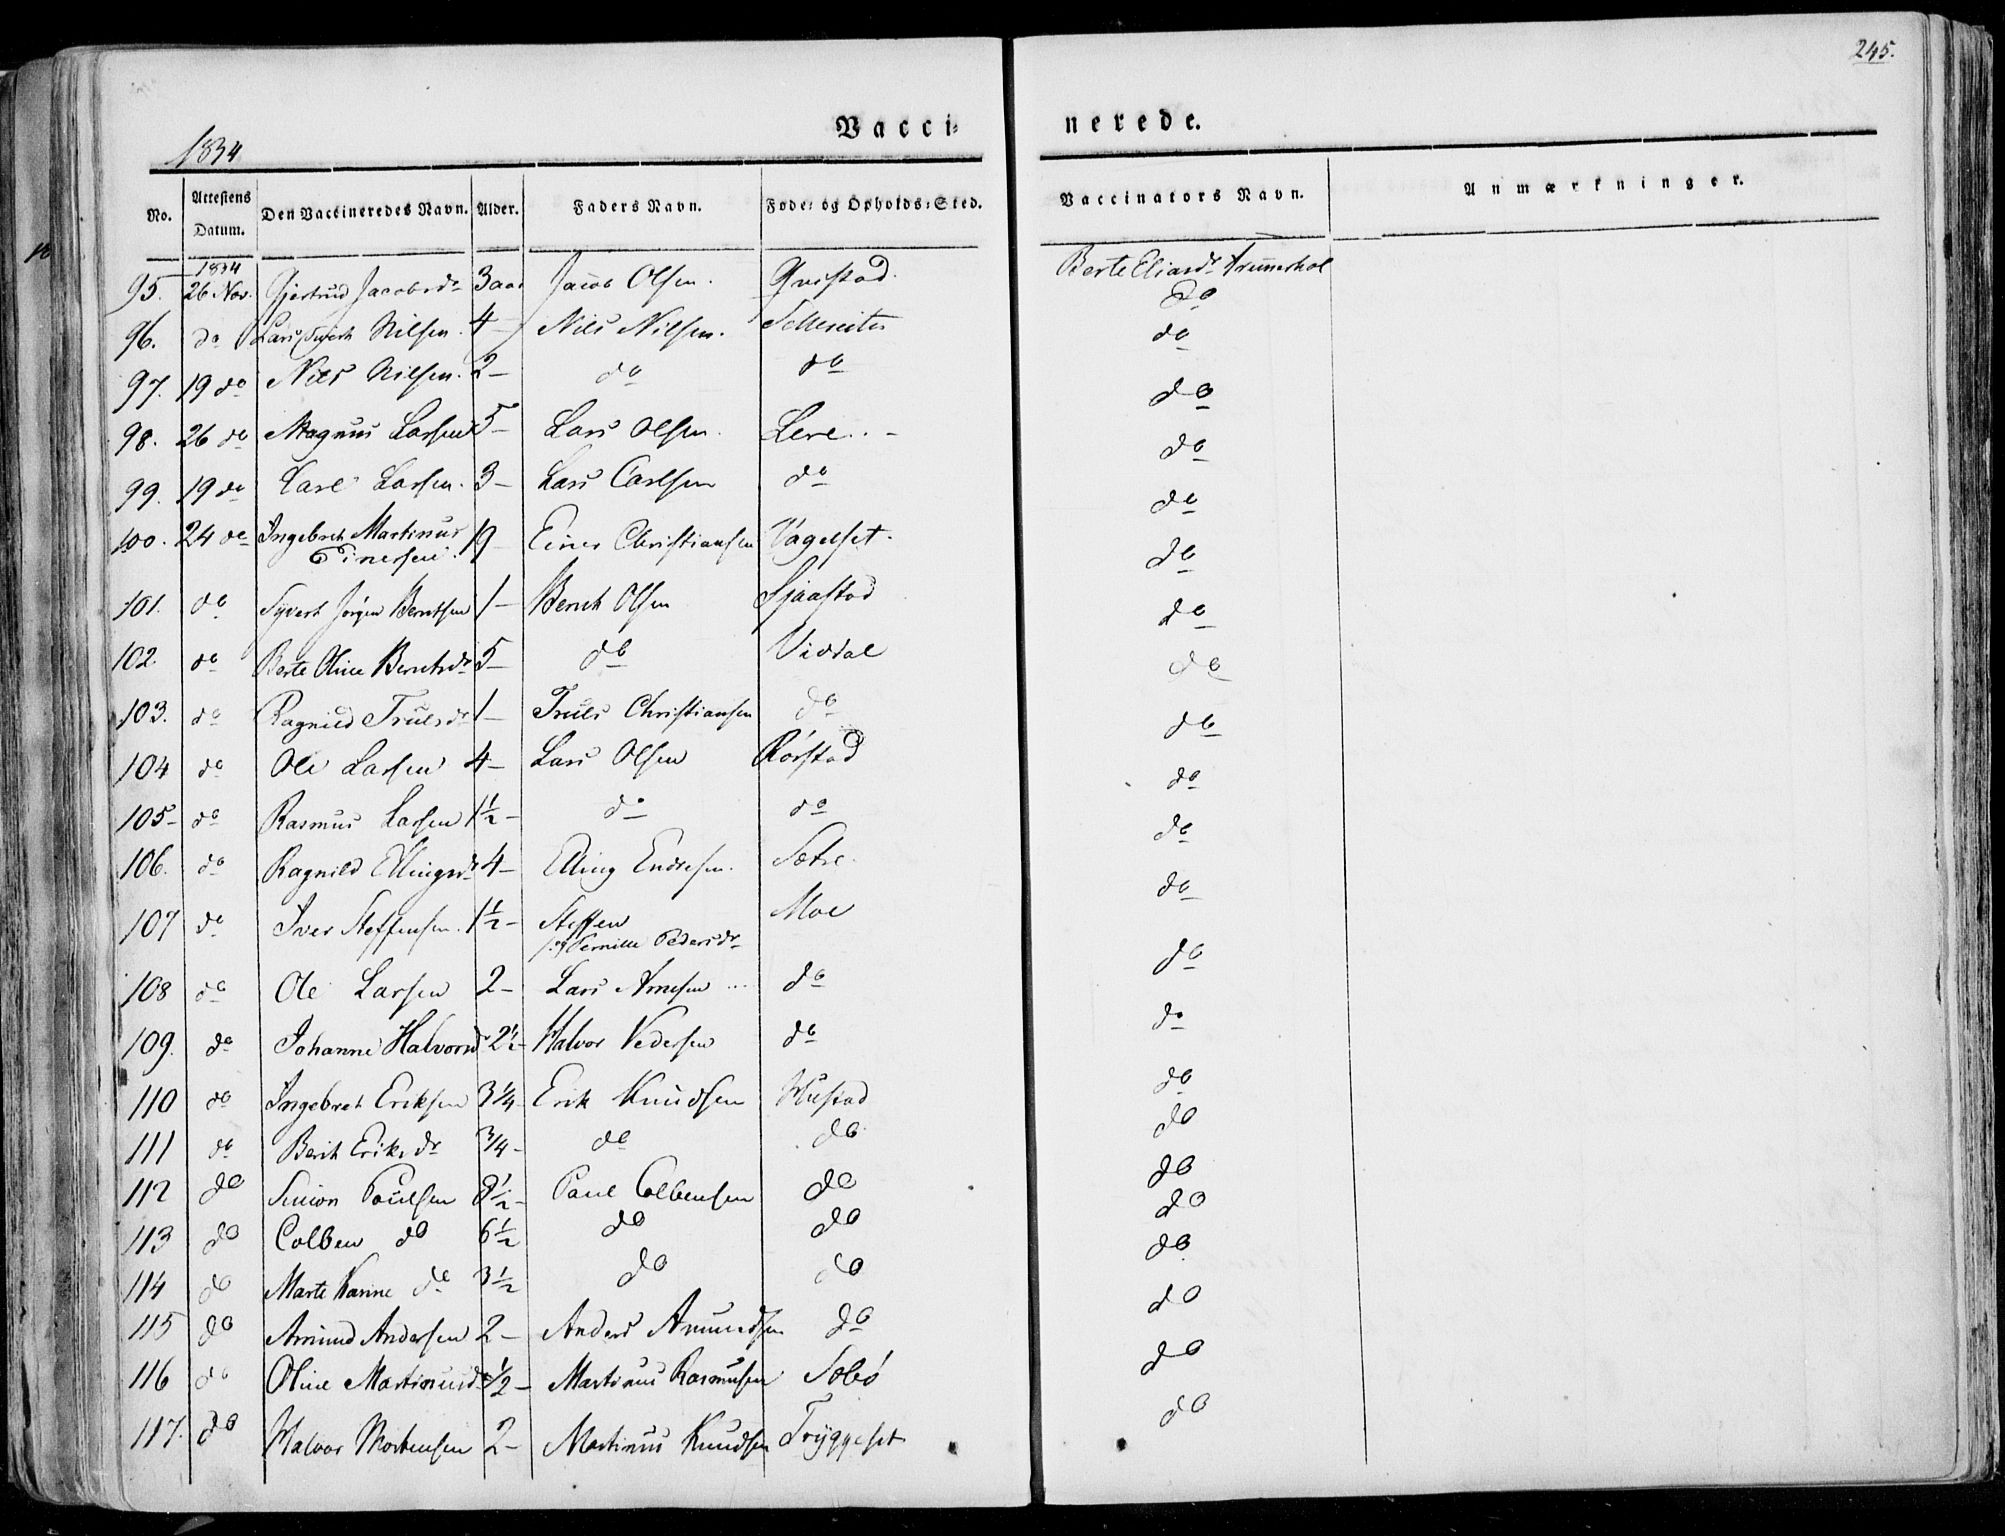 245.
Vacci- nerede.
1834
No. Attestens Datum. Den Vaccineredes Navn. Alder. Faders Navn. Føde- og Opholds-Sted. Vaccinators Navn. Anmærkninger.
1834
95. 26 Nov. Gjertrud Jacobsdr 3 aar Jacob Olsen. Qvistad. Berte Eliasdr
do
96. do Lars Nilsen. 4 – Nils Nilsen. do
97. 19 do Nils Nilsen. 2 – do do do
98. 26 do Magnus Larsen 5 – Lars Olsen. Lere.. – do
99. 19 do Carl Larsen. 3 – Lars Carlsen do do
100. 24 do Ingebret Martinus Einersen. 19 – Einer Christiansen Vågeset. do
101. do Syvert Jørgen Berntsen 1 – Bernt Olsen Sjaastad do
102. do Berte Oline Berntsdr 5 – do Viddal do
103. do Ragnild Trulsdr 1 – Truls Christiansen do do
104 do Ole Larsen 4 – Lars Olsen Rørstad do
105 – do Rasmus Larsen 1½ – do do do
106. do Ragnild Ellingsdr 4 – Elling Endresen. Sætre. do
107 do Iver Steffensen. 1½ – Steffen Moe do
/: Pernille Pedersdr
108 do Ole Larsen 2 – Lars Arnesen ... do do
109. do Johanne Halvorsd 2½ – Halvor Pedersen do do
110 do Ingebret Eriksen 3¼ – Erik Knudsen Hustad do
111 do Berit Eriksdr ¾ – do do do
112 do Simon Poulsen 8½ – Paul Colbensen do do
113 do Colben do 6½ do do do
114 do Marte Karine do 3½ do do do
115 do Amund Andersen 2 – Anders Amundsen do do
116 do Oline Martinusdr ½ – Martinus Rasmusen Solbø do
117. do Halvor Mortensen 2 – Martinus Knudsen Tryggeset do